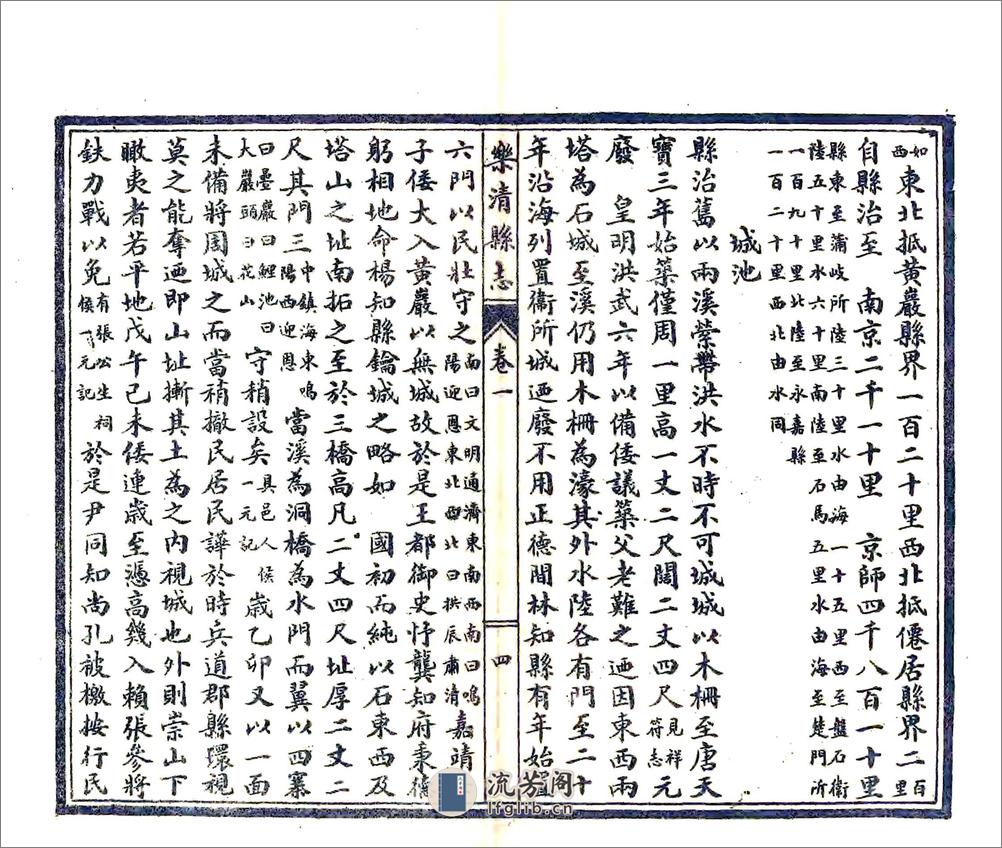 如西東北抵黃巖縣界一百二十里西北抵僊居縣界二百里
自縣治至 南京二千一十里 京師四千八百一十里
縣東至蒲岐所陸三十里水由海一十五里西至盤石衛
陸五十里水六十里南陸至石馬五里水由海至楚門所
一百九十里北陸至永嘉縣
一百二十里西北由水同
城池
縣治舊以兩溪縈帶洪水不時不可城城以木柵至唐天
寶三年始築僅周一里高一丈二尺闊二丈四尺見祥符志元
廢 皇明洪武六年以備倭議築父老難之迺因東西兩
塔為石城至溪仍用木柵為濠其外水陸各有門至二十
年沿海列置衛所城迺廢不用正德間林知縣有年始置
樂清縣志 卷一 四
六門以民壯守之南曰文明通濟東南西南曰鳴陽迎恩東北西北曰拱辰肅清嘉靖
子倭大入黃巖以無城故於是王都御史忬龔知府秉德
躬相地命楊知縣鑰城之略如 國初而純以石東西及
塔山之址南拓之至於三橋高凡二丈四尺址厚二丈二
尺其門三中鎮海東鳴陽西迎恩當溪為洞橋為水門而翼以四寨
曰疊巖曰鯉池曰大巖頭曰花山守稍設矣具邑人侯一元記歲乙卯又以一面
未備將周城之而當稍撤民居民譁於時兵道郡縣環視
莫之能奪迺即山址塹其土為之內視城也外則崇山下
瞰夷者若平地戊午己未倭連歲至憑高幾入賴張參將
鈇力戰以免有張公生祠侯一元記於是尹同知尚孔被檄按行民
流芳阁
lfglib.cn